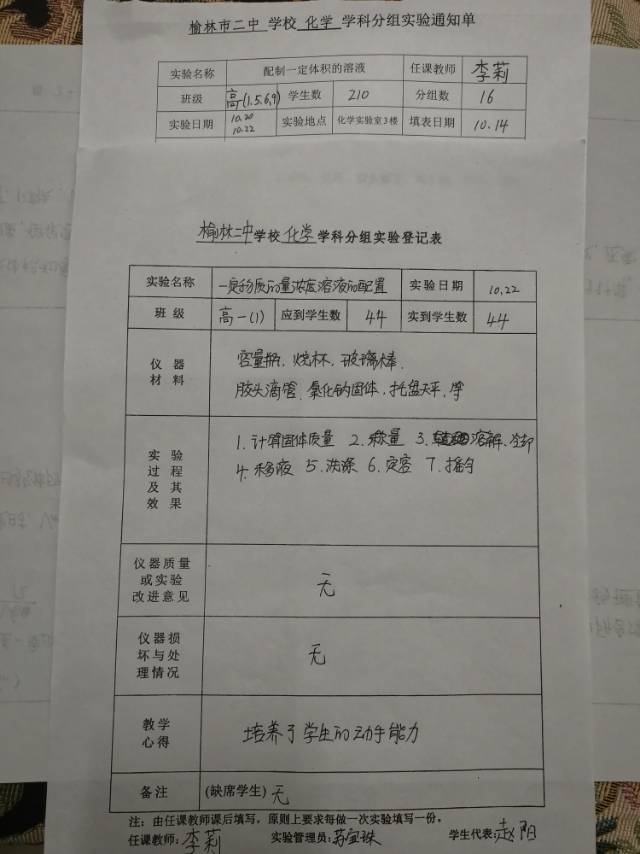 榆林市二中 学校 化学 学科分组实验通知单
实验名称 配制一定体积的溶液 任课教师 李莉
班级 高一(1.5.6.9) 学生数 210 分组数 16
实验日期 10.20 10.22 实验地点 化学实验室3楼 填表日期 10.14
榆林二中学校化学学科分组实验登记表
实验名称 一定物质的量浓度溶液的配置 实验日期 10.22
班级 高一(1) 应到学生数 44 实到学生数 44
仪器材料
容量瓶、烧杯、玻璃棒、
胶头滴管、氯化钠固体、托盘天平、等
实验过程及其效果
1.计算固体质量 2.称量 3.溶解、冷却
4.移液 5.洗涤 6.定容 7.摇匀
仪器质量或实验改进意见 无
仪器损坏与处理情况 无
教学心得 培养了学生的动手能力
备注 (缺席学生) 无
注：由任课教师课后填写，原则上要求每做一次实验填写一份。
任课教师：李莉 实验管理员： 学生代表：赵阳